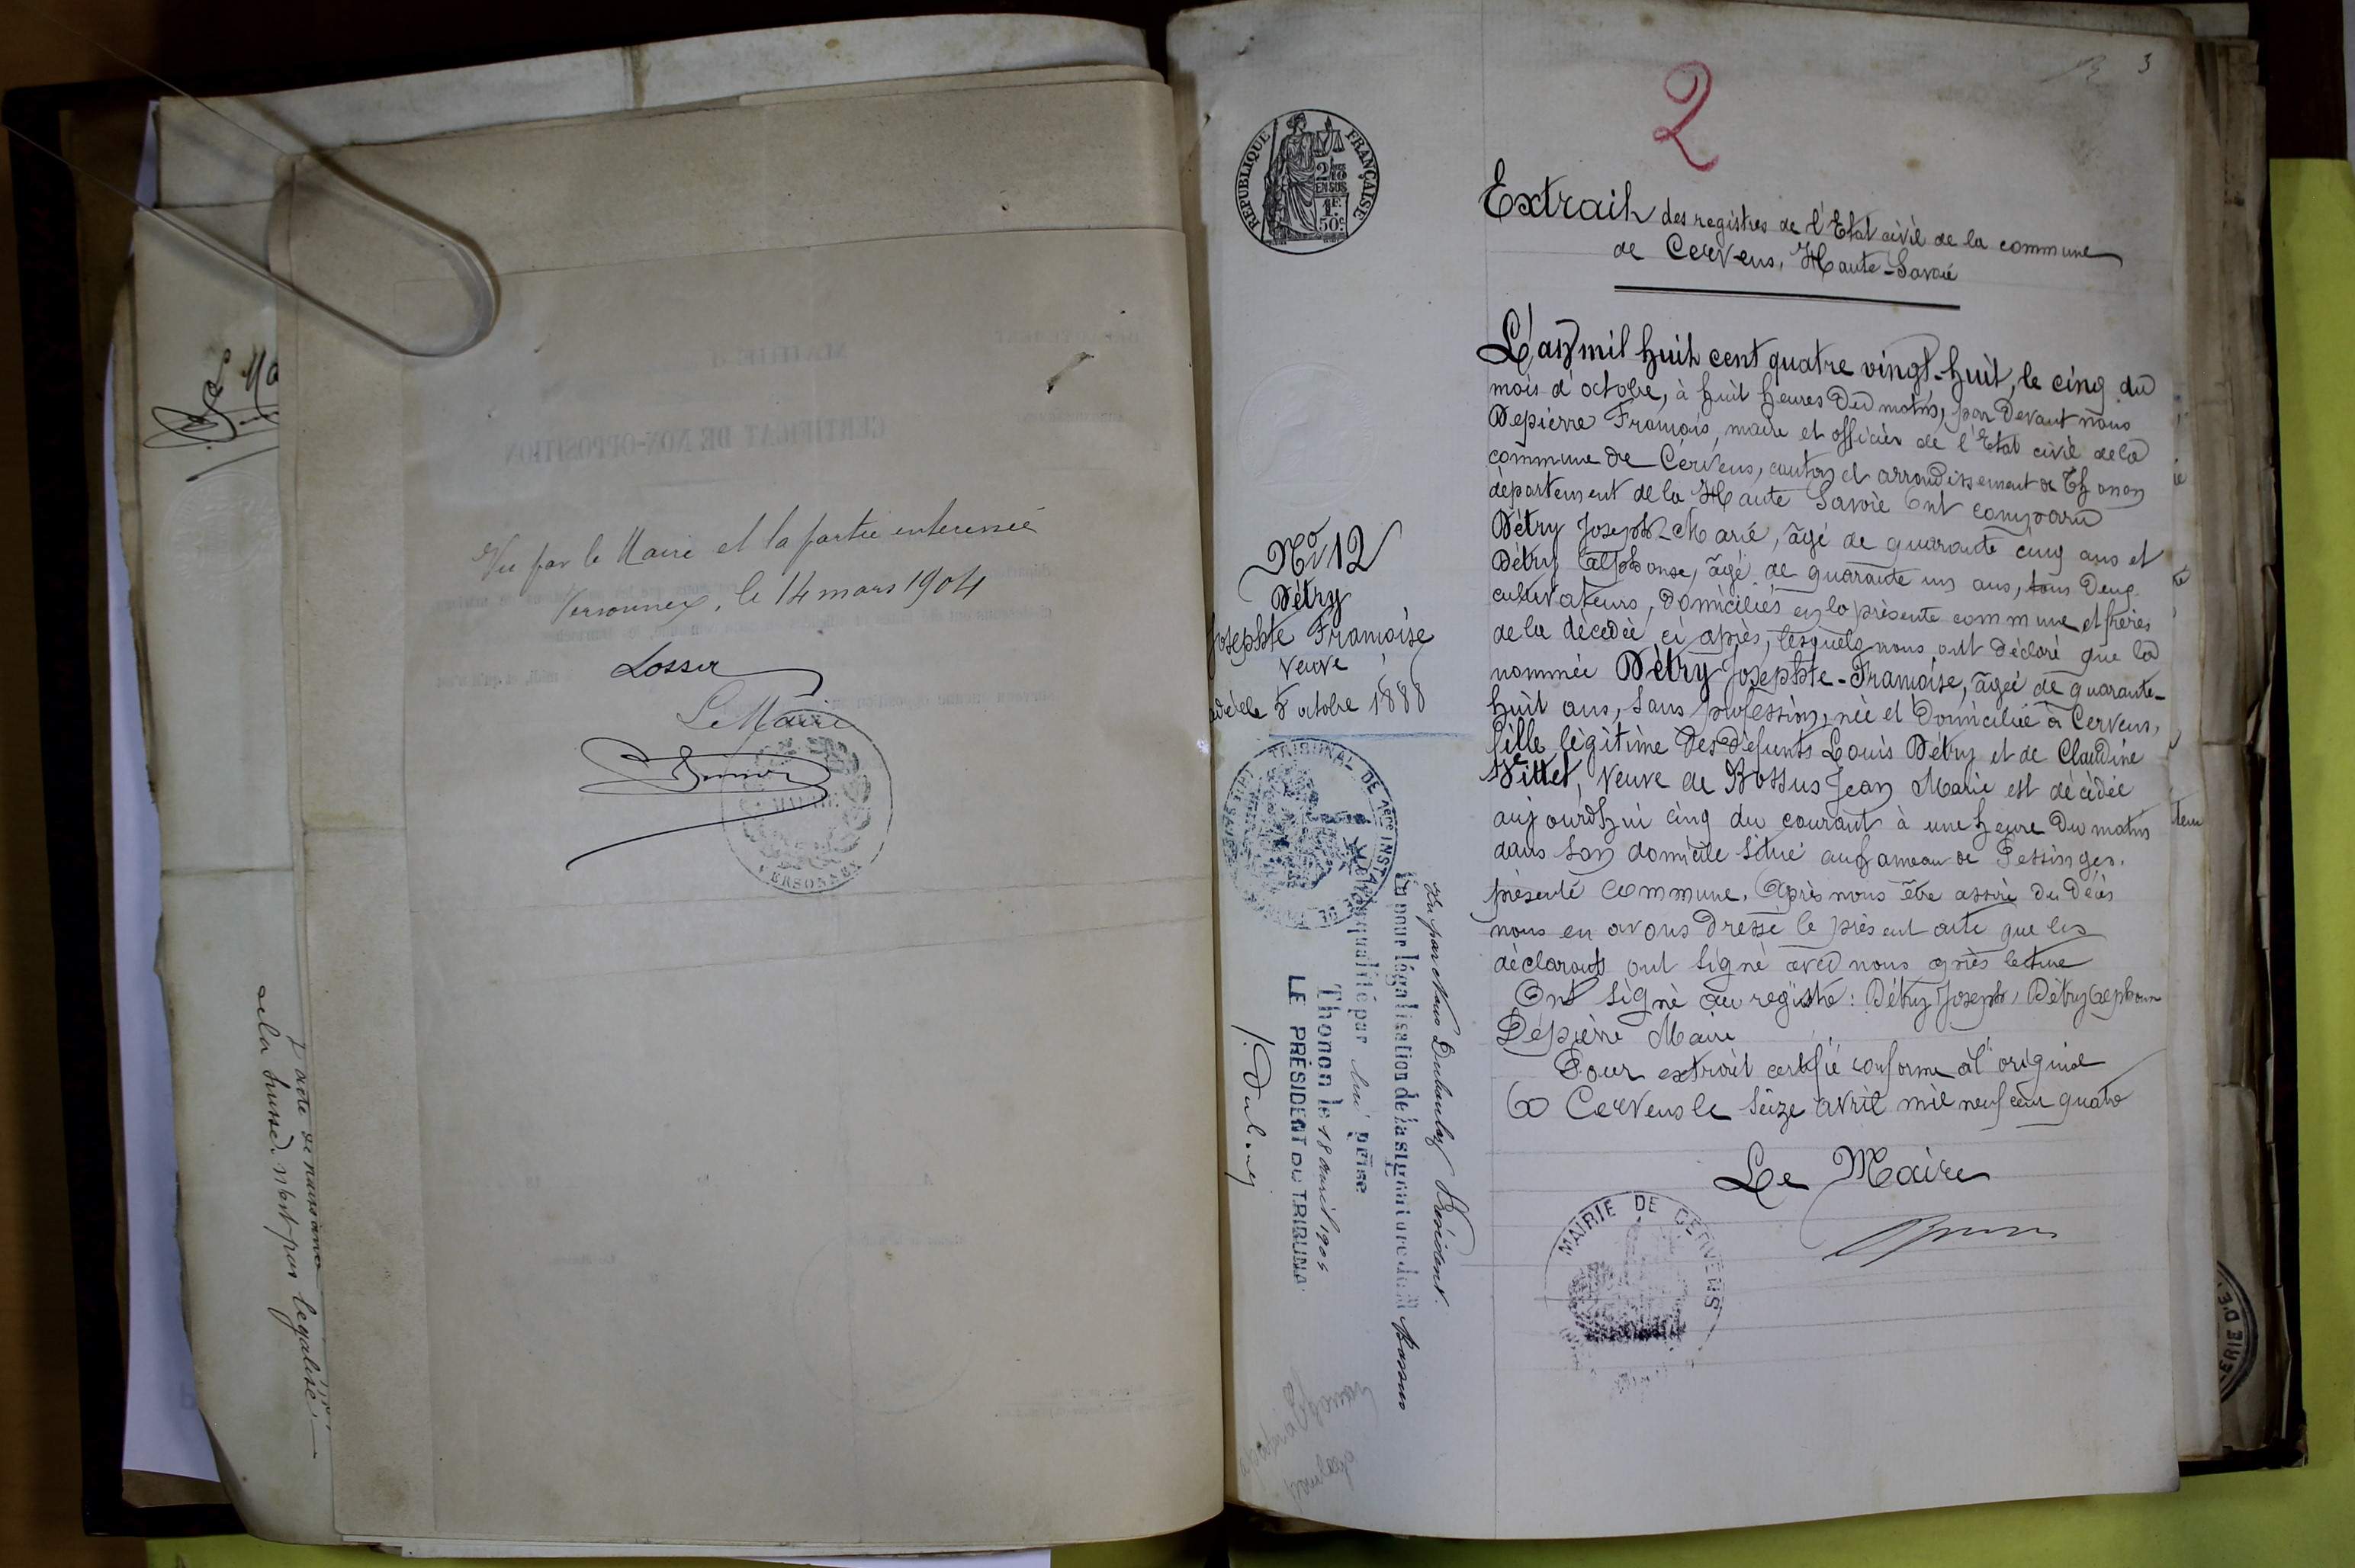 Le Ma
L'acte de naissance
a la Suisse n'est pas légalisé.
MAIRIE d
CERTIFICAT DE NON-OPPOSITION
Vu par le Maire et la partie interessée
Versonnex, le 14 mars 1904
Losser
Le Maire
MAIRIE
VERSONNEX
3
2
REPUBLIQUE FRANÇAISE
2/10
EN SUS
1F.
50c.
Extrait des registres de l'Etat civil de la commune
de Cervens, Haute-Savoie
N° 12
Détry
Josephte Françoise
veuve
décédée 5 octobre 1888
L'an mil huit cent quatre vingt-huit, le cinq du
mois d'octobre, à huit heures du matin, par devant nous
Depierre François, maire et officier de l'Etat civil de la
commune de Cervens, canton et arrondissement de Thonon
département de la Haute Savoie ont comparu
Détry Joseph-Marie, âgé de quarante cinq ans et
Détry Alphonse, âgé de quarante un ans, tous deux
cultivateurs, domiciliés en la présente commune et frères
de la décédée ci après, lesquels nous ont déclaré que la
nommée Détry Josephte-Françoise, âgée de quarante-
huit ans, sans profession, née et domiciliée à Cervens,
fille légitime des défunts Louis Détry et de Claudine
Vittet, veuve de Bossus Jean Marie est décédée
aujourd'hui cinq du courant à une heure du matin
dans son domicile situé au hameau de Pessinges.
présente commune. Après nous être assuré du décès
nous en avons dressé le présent acte que les
déclarants ont signé avec nous après lecture
Ont signé au registre : Détry Joseph, Détry Alphonse
Depierre Maire
Pour extrait certifié conforme à l'original
à Cervens le seize avril mil neuf cent quatre
Le Maire
MAIRIE DE CERVENS
TRIBUNAL DE 1ERE INSTA
Vu par Nous Dulauloy Président.
Vu pour légalisation de la signature de M Bossus
qualité par lui prise
Thonon le 18 avril 1904
LE PRÉSIDENT DU TRIBUNAL
teur
ERIE D'E